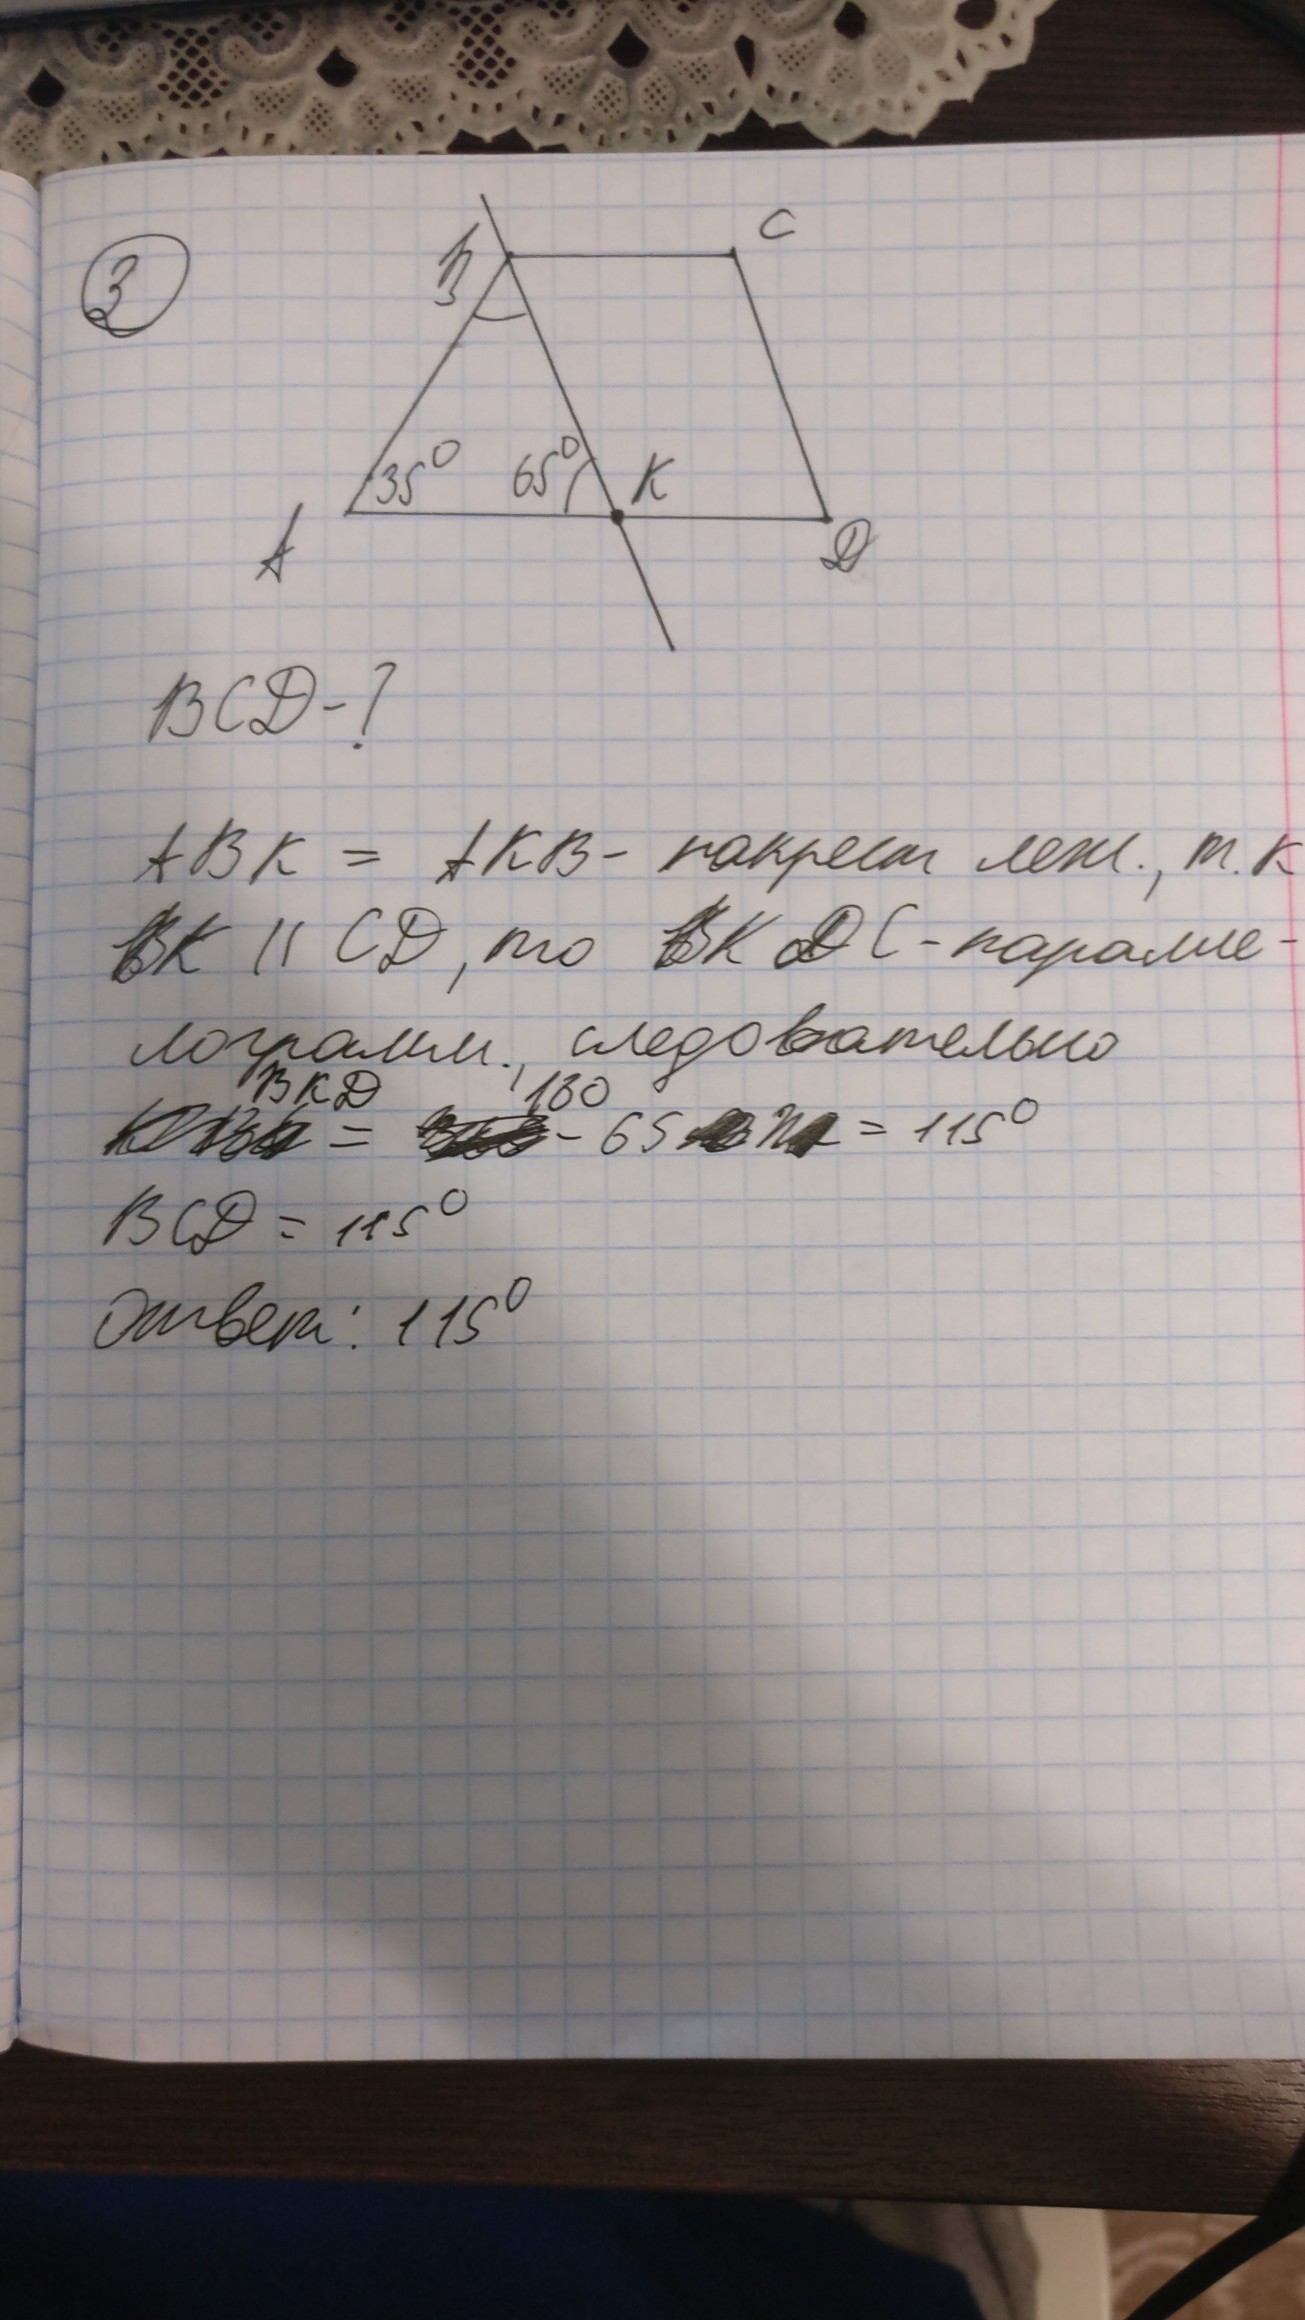 3
B
C
35°
65°
K
A
D
BCD-?
ABK = AKB - накрест леж., т.к
BK || CD, то BKDC - паралле-
лограмм., следовательно
BKD 180
= - 65 = 115°
BCD = 115°
Ответ: 115°